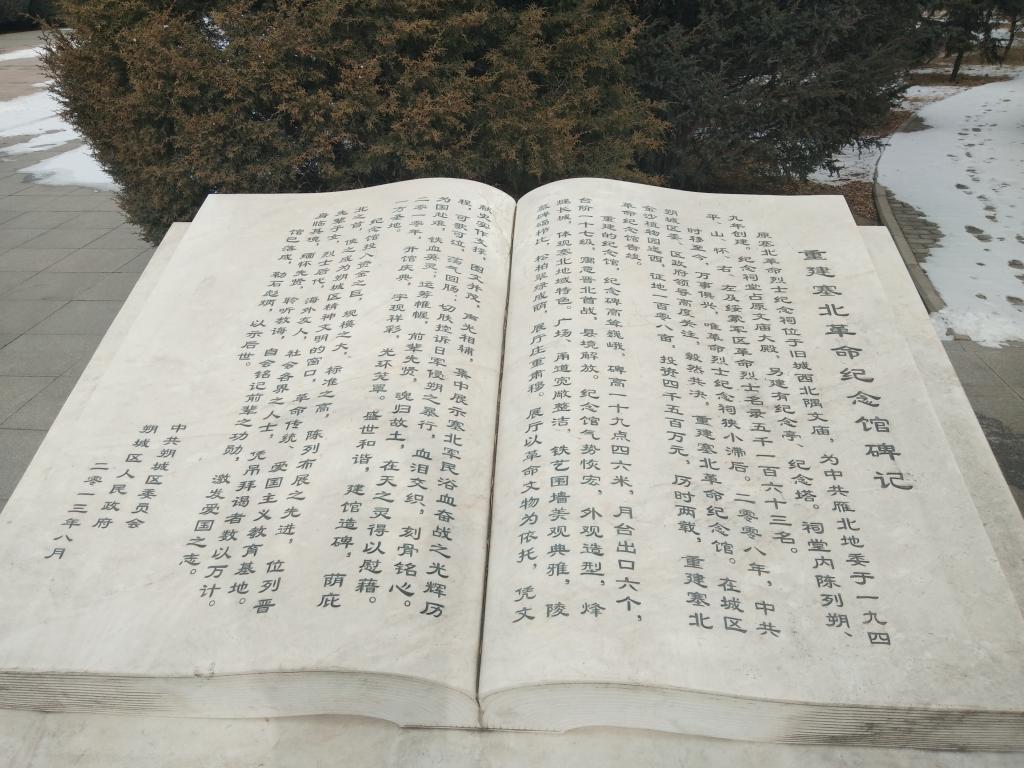 重建塞北革命纪念馆碑记
原塞北革命烈士纪念祠位于旧城西北隅文庙，为中共雁北地委于一九四
九年创建。纪念祠堂占原文庙大殿，另建有纪念亭、纪念塔。祠堂内陈列朔、
平、山、怀、右、左及绥蒙军区革命烈士名录五千一百六十三名。
时移至今，万事俱兴，唯革命烈士纪念祠狭小滞后。二零零八年，中共
朔城区委、区政府领导高度关注，毅然共决，重建塞北革命纪念馆。在城区
金沙植物园迤西，征地一百零八亩，投资四千五百万元，历时两载，重建塞北
革命纪念馆告竣。
重建的纪念馆，纪念碑高耸巍峨，碑高一十九点四六米，月台出口六个，
台阶一十七级，寓意晋北首战，县境解放。纪念馆气势恢宏，外观造型，烽
燧长城，体现塞北地域特色。广场、甬道宽敞整洁，铁艺围墙美观典雅，陵
墓碑碣节比，松柏翠绿成荫，展厅庄重肃穆。展厅以革命文物为依托，凭文
献史实作支撑，图文并茂，声光相辅，集中展示塞北军民浴血奋战之光辉历
程，可歌可泣，荡气回肠；切肤控诉日军侵朔之暴行，血泪交织，刻骨铭心。
为国赴难，铁血英灵；运筹帷幄，前辈先贤，魂归故土，在天之灵得以慰藉。
二零一零年，开馆庆典，宇现祥彩，光环笼罩。盛世和谐，建馆造碑，荫庇
一方圣地。
纪念馆投入资金之巨，规模之大，标准之高，陈列布展之先进，位列晋
北之首，使之成为朔城区精神文明的窗口，革命传统、爱国主义教育基地。
先辈子女，烈士后代，海外友人，社会各界之人士，凭吊拜谒者数以万计。
身临其境，缅怀先贤，聆听教诲，自会铭记前辈之功勋，激发爱国之志。
馆已落成，勒石彪炳，以示后世。
中共朔城区委员会
朔城区人民政府
二零一三年八月